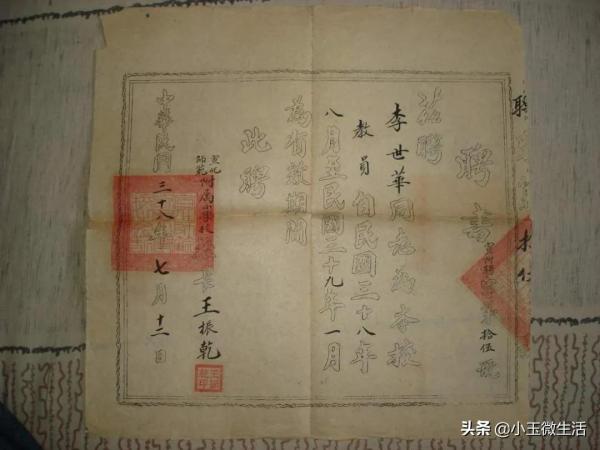 聘書
拾伍號
茲聘
李世華同志為本校
教員自民國三十八年
八月至民國三十九年一月
為有效期間
此聘
宣化
師範附属小學校校長王振乾
中華民國三十八年七月十二日
头条@小玉微生活